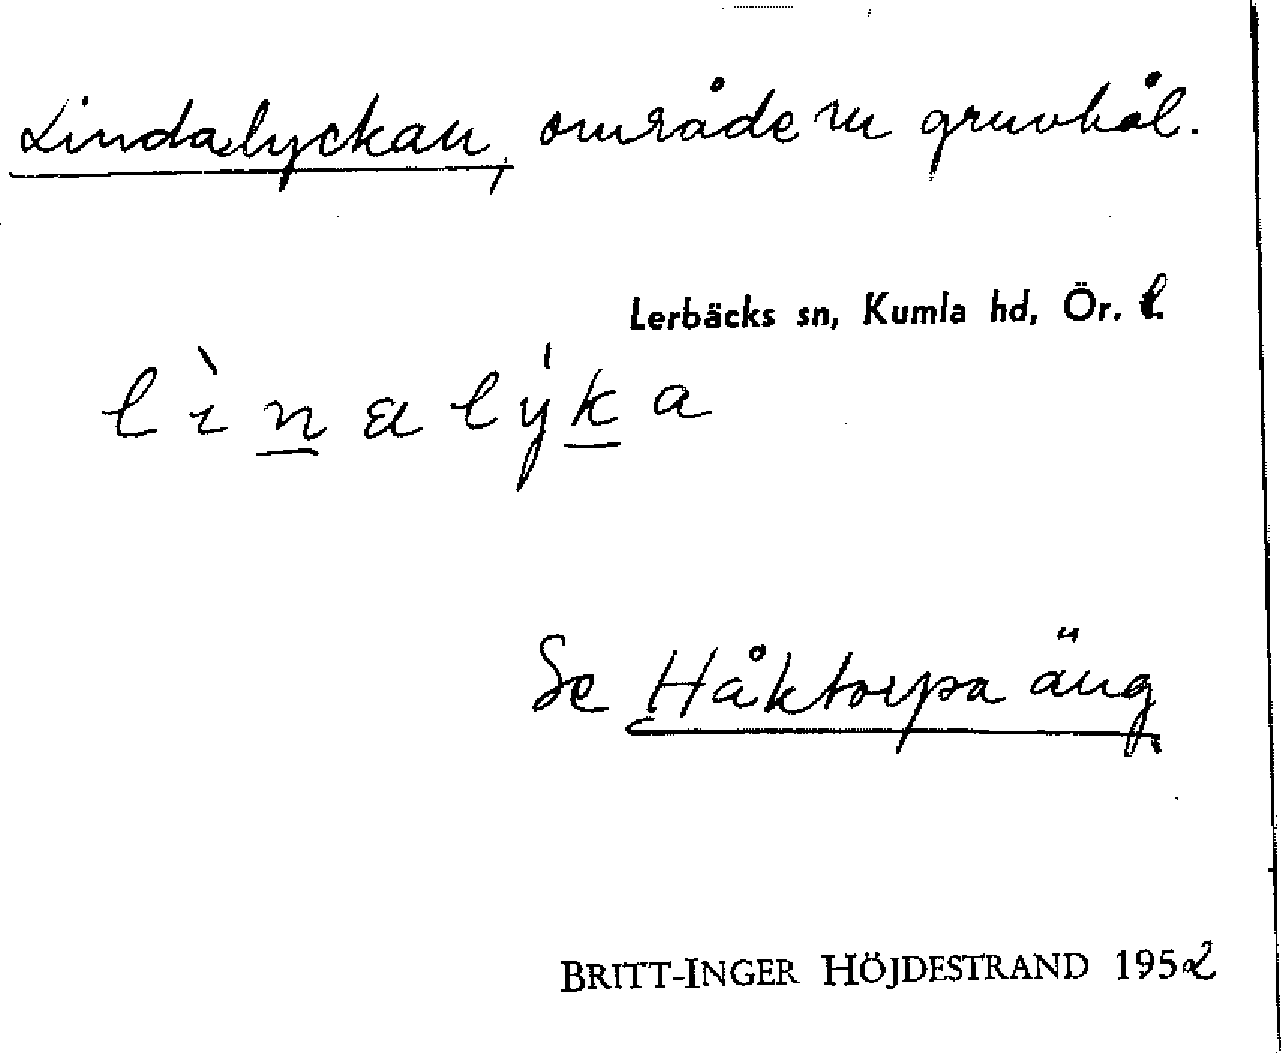 Lindalyckan, område m gruvhål.
Lerbäcks sn, Kumla hd, Ör. l.
lìnalýka
Se Håktorpa äng
BRITT-INGER HÖJDESTRAND 1952